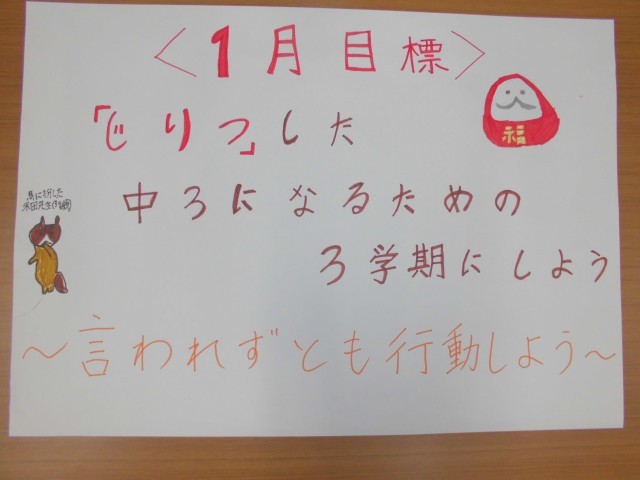 〈1月目標〉
福
「じりつ」した
中3になるための
馬に扮した
3学期にしよう
〜言われずとも行動しよう〜